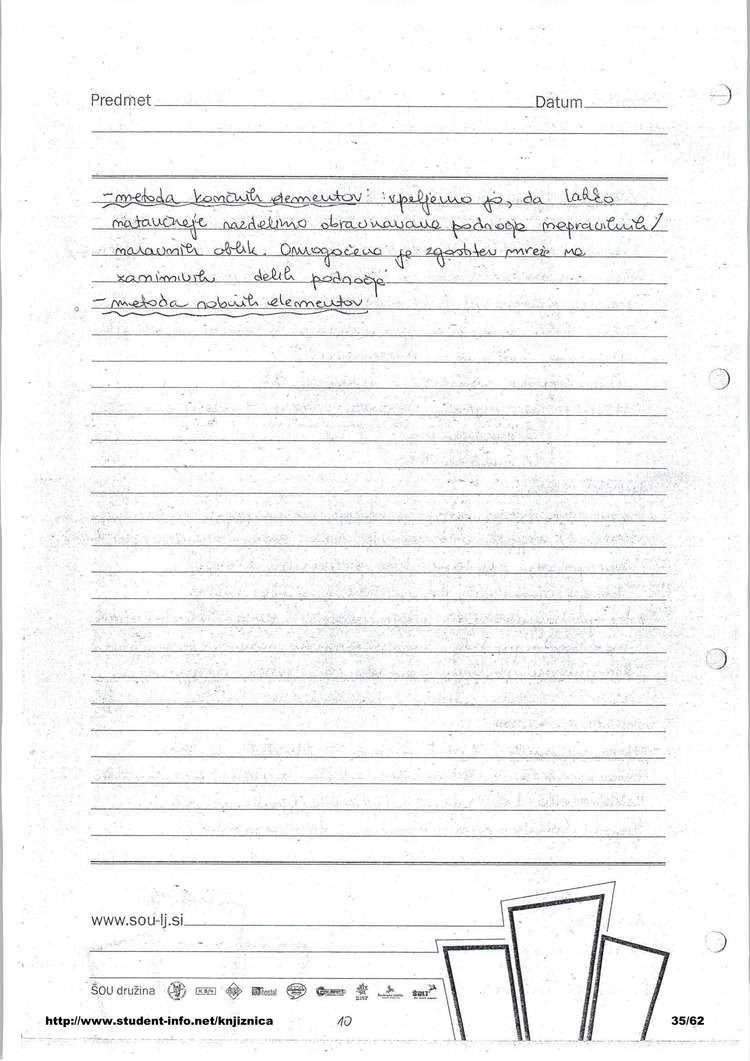 Predmet Datum
- metoda končnih elementov: vpeljemo jo, da lahko
natančneje razdelimo obravnavano področje nepravilnih /
naravnih oblik. Omogočena je zgostitev mreže na
zanimivih delih področja
- metoda robnih elementov
www.sou-lj.si
ŠOU družina
http://www.student-info.net/knjiznica 10 35/62